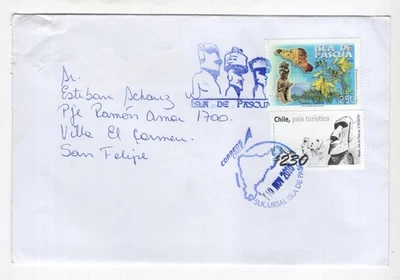 Sr.
Esteban
Pje Ramón Amor 1700.
Villa El Carmen
San Felipe
ISLA DE PASCUA
ISLA DE
PASCUA
Chile, país turístico
$230
CORREOS
NOV
SUCURSAL ISLA DE PAS